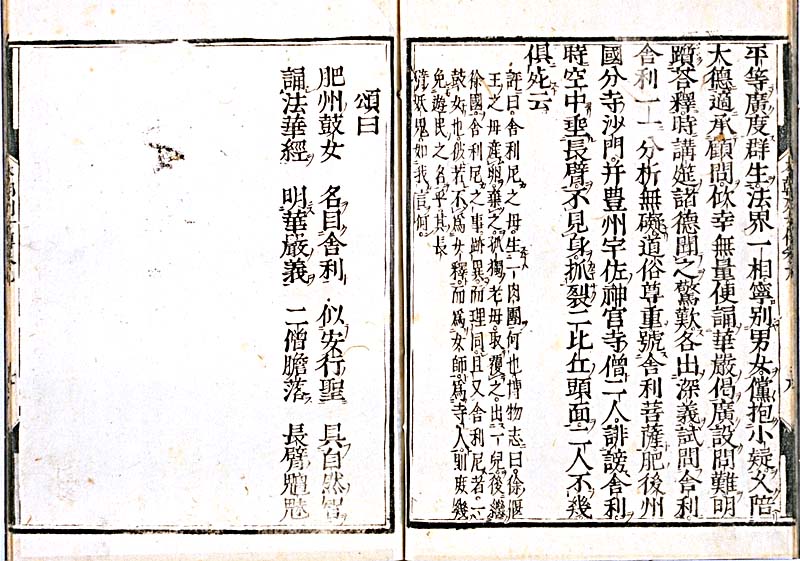 平等廣度群生法界一相寧別男女儻抱小疑又陪
大德適承顧問欣幸無量便誦華嚴偈廣設問難明
賾荅釋時講筵諸德聞之驚歎各出深義試問舍利
舍利一一分析無礙道俗尊重號舍利菩薩肥後州
國分寺沙門并豊州宇佐神宮寺僧二人誹謗舍利
時空中垂長臂不見身抓裂二比丘頭面二人不幾
俱死云
評曰舍利尼之母生一肉團何也博物志曰徐偃
王之母產卵棄之孤獨老母取覆之出一兒後繼
徐國舍利尼之事跡異而理同且又舍利尼者一
鼓女也彼若不爲女釋而爲女師爲寺人則庶幾
免遊民之名乎其長
臂妖鬼如我言何
頌曰
肥州鼓女 名目舍利 似安行聖 具自然智
誦法華經 明華嚴義 二僧膽落 長臂魑魅